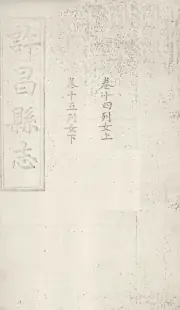 許昌縣志
卷十四列女上
卷十五列女下